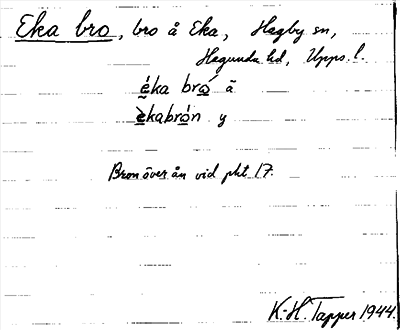 Eka bro, bro å Eka, Hagby sn,
Hagunda hd, Upps. l.
éka bró ä
èkabrón y
Bron över ån vid pkt 17.
K.-H. Tapper 1944.